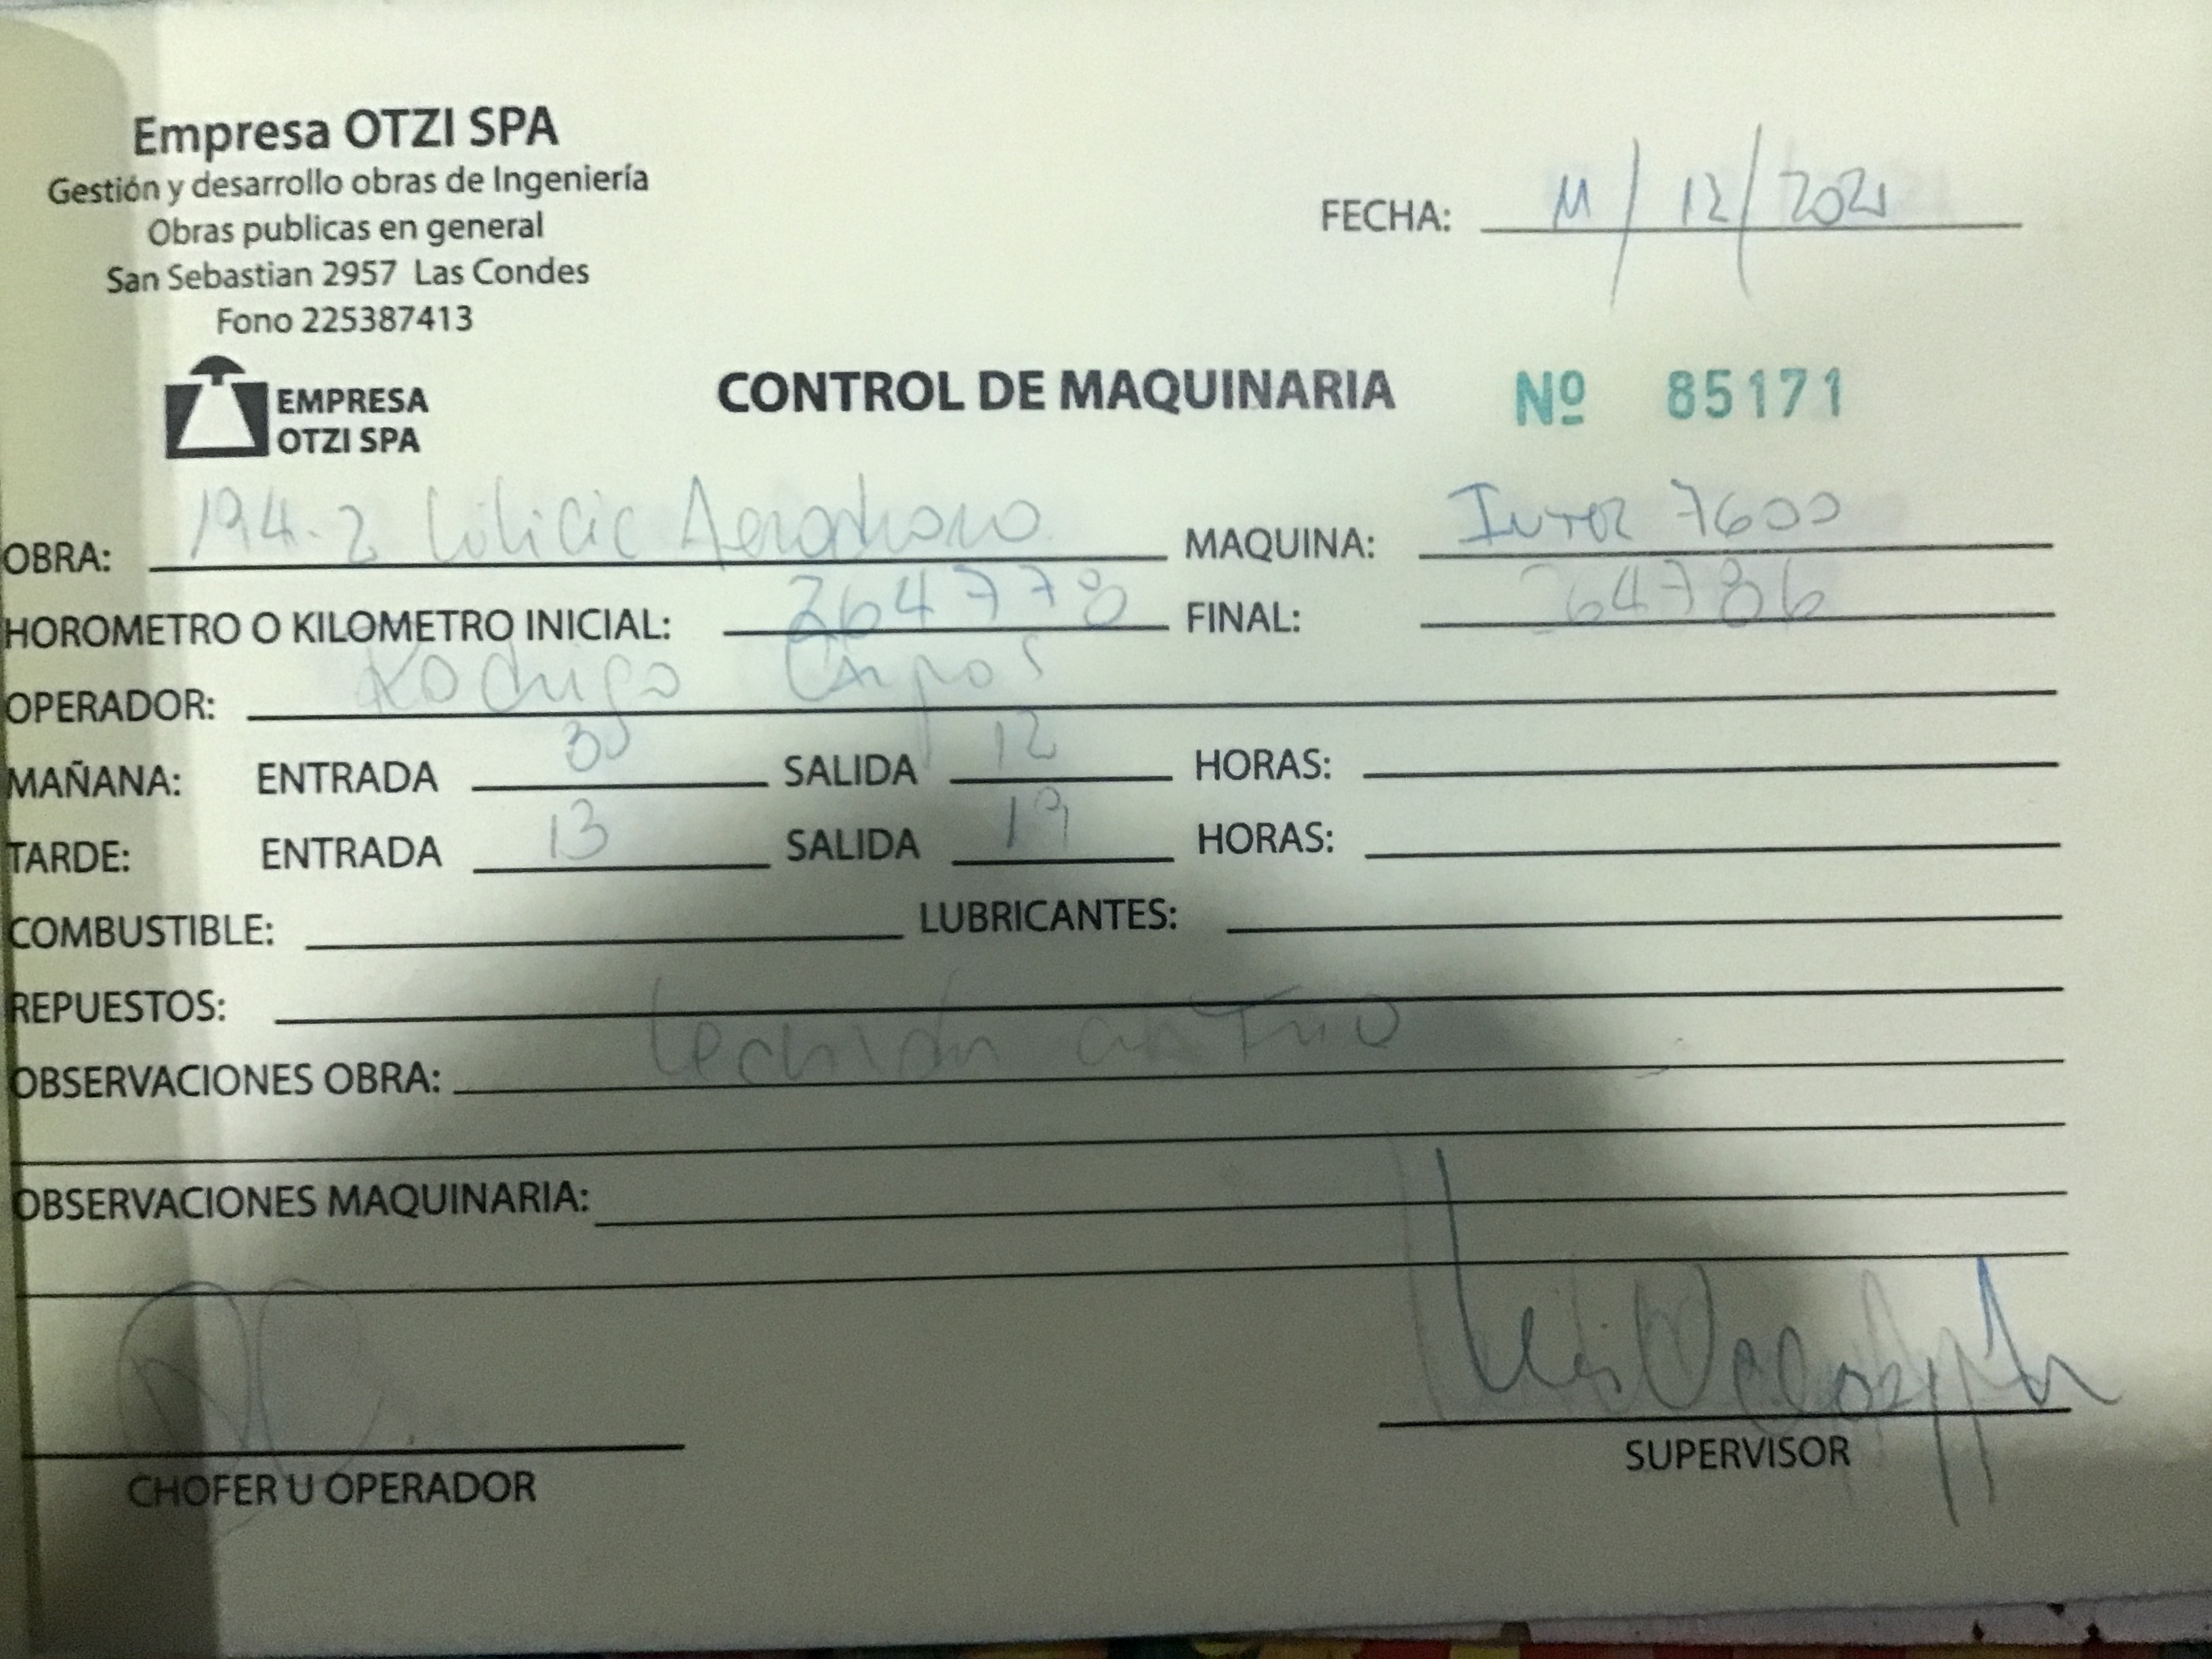 Empresa OTZI SPA
Gestión y desarrollo obras de Ingeniería
Obras publicas en general
San Sebastian 2957 Las Condes
Fono 225387413
FECHA: 11/12/2021
EMPRESA
OTZI SPA
CONTROL DE MAQUINARIA
Nº 85171
OBRA: 194.2 MAQUINA: Inter 7600
HOROMETRO O KILOMETRO INICIAL: 264778 FINAL: 264786
OPERADOR: Rodrigo Campos
MAÑANA: ENTRADA SALIDA 12 HORAS:
TARDE: ENTRADA 13 SALIDA 19 HORAS:
COMBUSTIBLE: LUBRICANTES:
REPUESTOS:
OBSERVACIONES OBRA:
OBSERVACIONES MAQUINARIA:
CHOFER U OPERADOR
SUPERVISOR